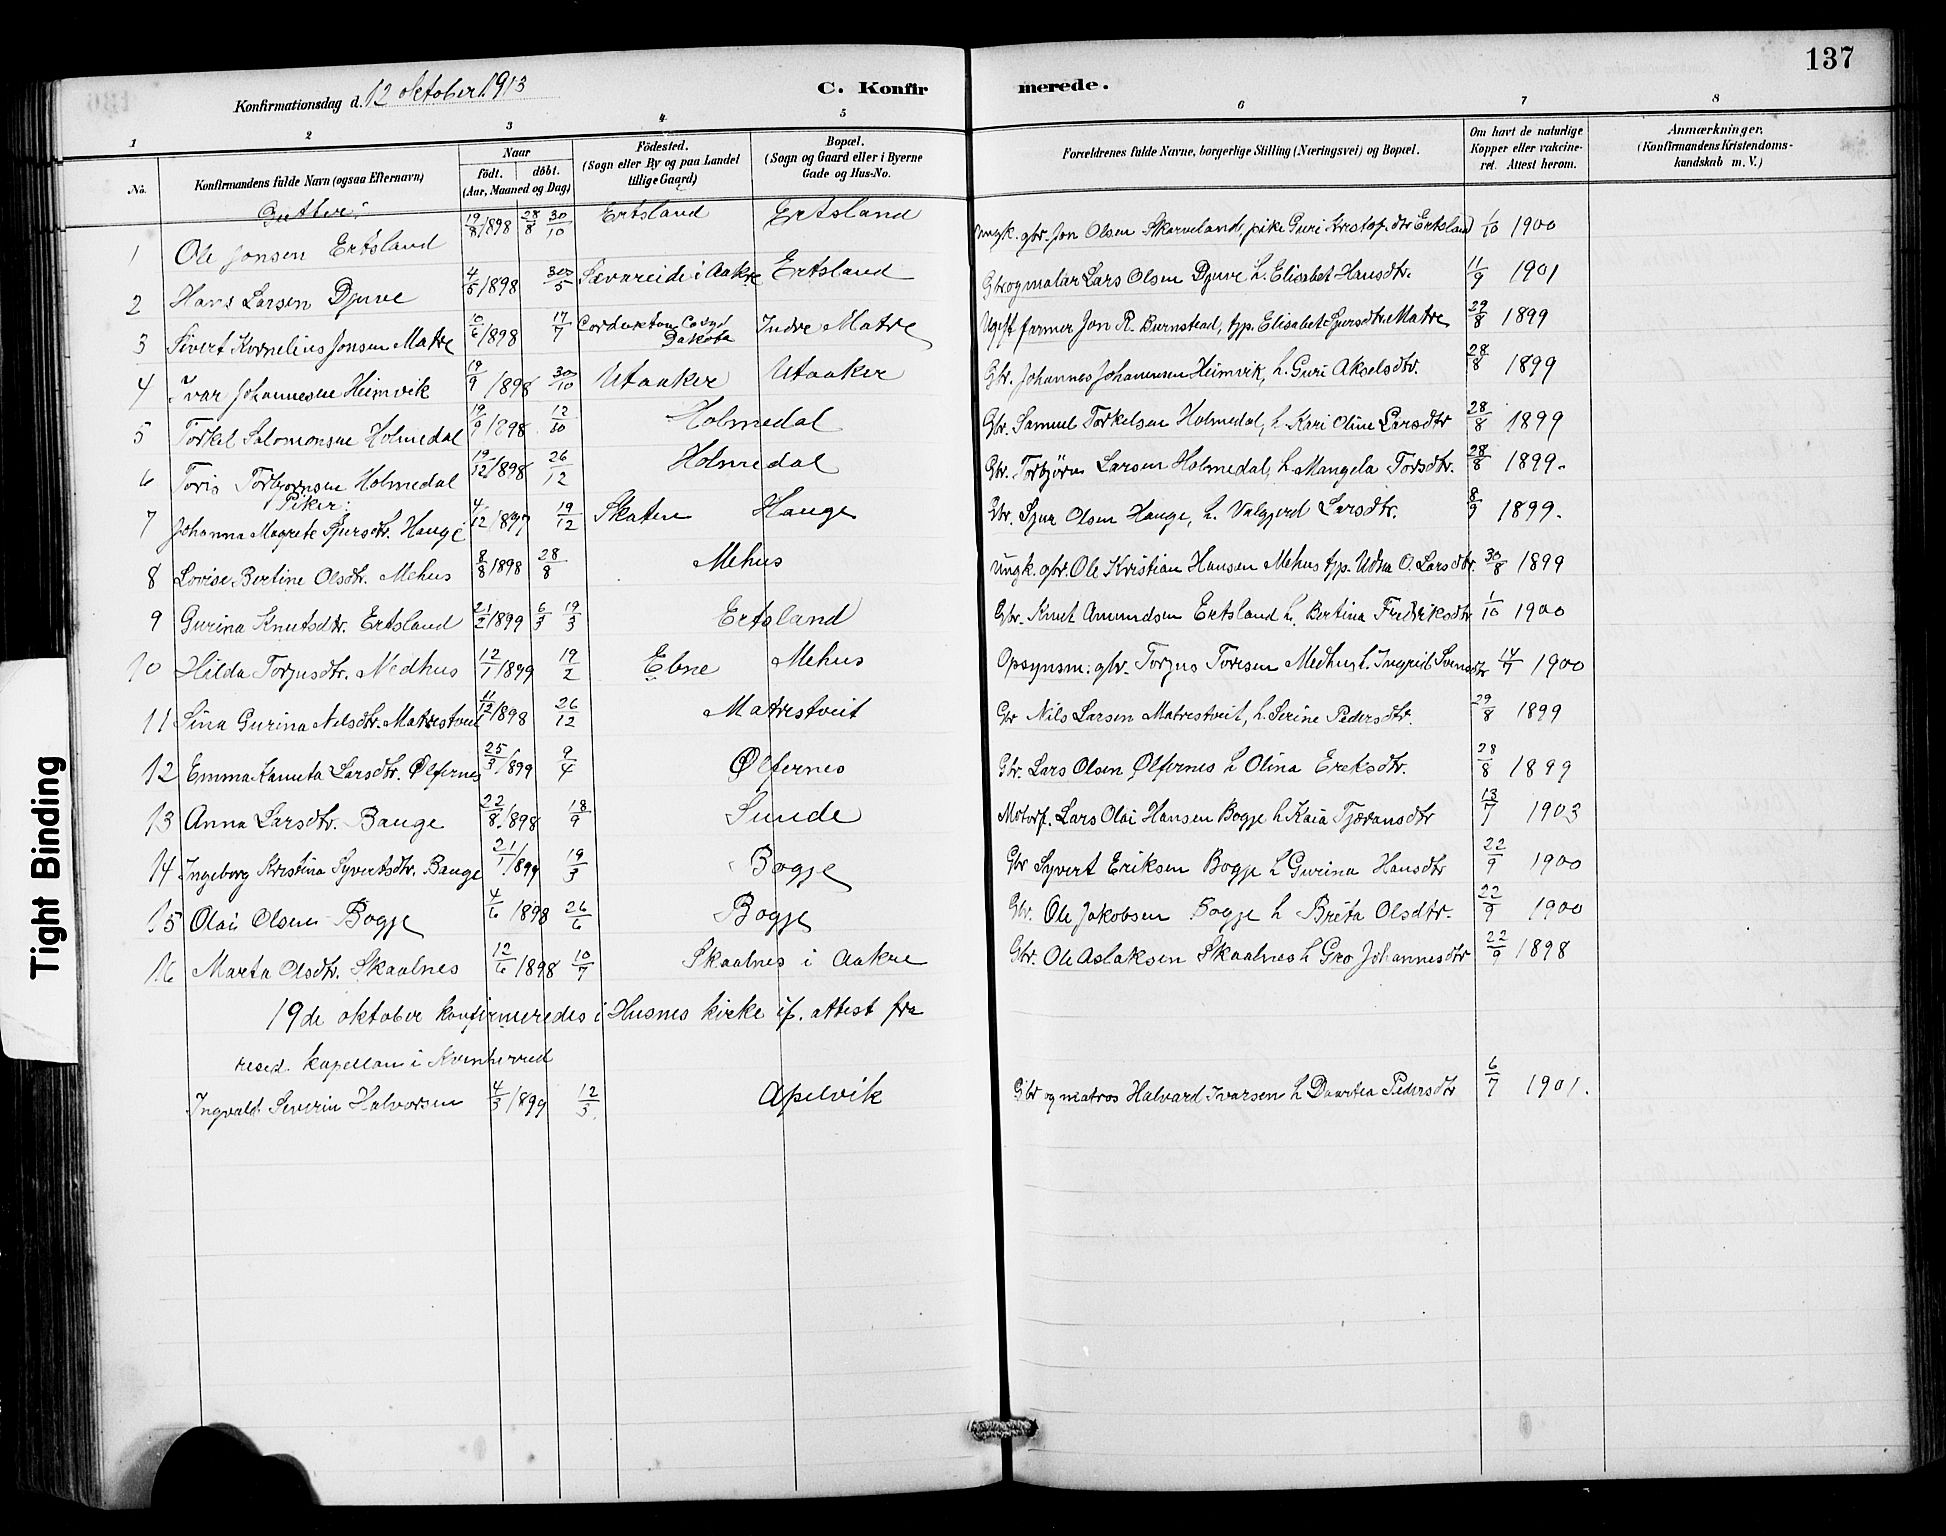 137
Konfirmationsdag d. 12 oktober 1913
C. Konfirmerede.
1 2 3 4 5 6 7 8
No. Konfirmandens fulde Navn (ogsaa Efternavn) Naar födt. döbt. (Aar, Maaned og Dag) Födested. (Sogn eller By og paa Landet tillige Gaard) Bopæl. (Sogn og Gaard eller i Byerne Gade og Hus-No. Forældrenes fulde Navne, borgerlige Stilling (Næringsvei) og Bopæl. Om havt de naturlige Kopper eller vakcineret. Attest herom. Anmærkninger. (Konfirmandens Kristendomskundskab m. V.)
Gutter:
1 Ole Jonsen Ertsland 19/8 1898 28/8 30/10 Ertsland Ertsland Ungk. gbr. Jon Olsen Skarveland, pike Guri Kristof.dtr Ertsland 1/10 1900
2 Hans Larsen Djuve 4/5 1898 30/5 Sævareide i Aakre Ertsland Gbr og malar Lars Olsen Djuve h. Elisabet Hansdtr. 11/9 1901
3 Sivert Kornelius Jonsen Matre 10/6 1898 17/7 Dakota Indre Matre Ugift farmer Jon R. Burnstead, tjp. Elisabet Sjursdtr. Matre 29/8 1899
4 Ivar Johannesen Heimvik 19/9 1898 30/10 Utaaker Utaaker Gbr. Johannes Johannesen Heimvik, h. Guri Akselsdtr. 28/8 1899
5 Torkel Salomonsen Holmedal 19/9 1898 12/10 Holmedal Gbr. Samuel Torkelsen Holmedal, h. Kari Oline Larsdtr 28/8 1899
6 Toris Torbjornsen Holmedal 19/12 1898 26/12 Holmedal Gbr. Torbjørn Larsen Holmedal, h. Mangela Torsdtr. 28/8 1899.
Piker:
7 Johanna Magrete Sjursdtr. Hauge 4/12 1897 19/12 Skaten Hauge Gbr. Sjur Olsen Hauge, h. Valgjerd Larsdtr. 8/9 1899.
8 Lovise Bertine Olsdtr. Mehus 8/8 1898 28/8 Mehus Ungk. gbr. Ole Kristian Hansen Mehus tjp. Udna O. Larsdtr. 30/8 1899
9 Gurina Knutsdtr. Ertsland 21/2 1899 6/3 19/3 Ertsland Gbr. Knut Amundsen Ertsland h. Bertina Fredriksdtr 1/10 1900
10 Hilda Torjusdtr. Nedhus 12/1 1899 19/2 Ebne Mehus Opsynsm. gbr. Torjus Toresen Medhus h. Ingrid Svensdtr 14/7 1900
11 Sina Gurina Nelsdtr. Matrestveit 11/12 1898 26/12 Matrestveit Gbr Nils Larsen Matrestveit, h. Serine Pedersdtr. 29/8 1899
12 Emma Kamita Larsdtr. Ølfernes 25/3 1899 9/4 Ølfernes Gbr. Lars Olsen Ølfernes h Olina Ereksdtr. 28/8 1899
13 Anna Larsdtr. Bauge 22/8 1898 18/9 Sunde Motorf. Lars Olai Hansen Bogje h Kaia Tjæransdtr 13/7 1903
14 Ingeborg Kristina Syvertsdtr. Bauge 21/1 1899 19/3 Bogje Gbr Syvert Eriksen Bogje h Gurina Hansdtr 22/9 1900
15 Olai Olsen Bogje 4/6 1898 26/6 Bogje Gbr. Ole Jakobsen Bogje h Breta Olsdtr. 22/9 1900
16 Marta Olsdtr. Skaalnes 12/6 1898 10/7 Skaalnes i Aakre Gbr. Ole Aslaksen Skaalnes h Gro Johannesdtr 22/9 1898
19de oktober konfirmeredes i Husnes kirke if. attest fra
resid. kapellan i Kvinherred
Ingvald Severin Halvorsen 4/3 1899 12/3 Apelvik Gbr og matros Halvard Ivarsen h Daartea Pedersdtr 6/7 1901.
Tight Binding